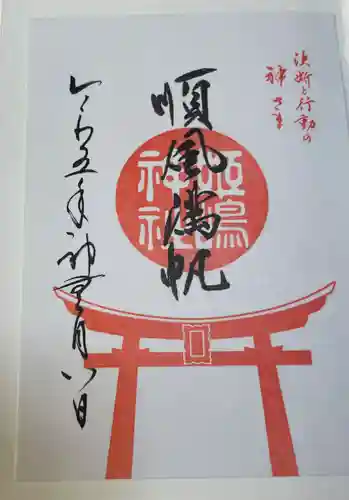 決断と行動の
神さま
順風満帆
神社
令和五年神無月八日